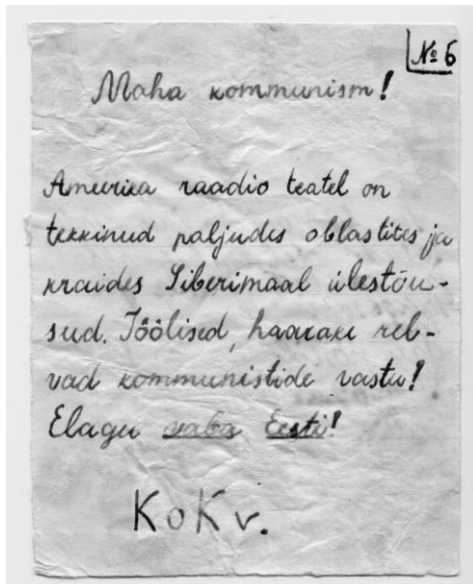 № 6
Maha kommunism!
Ameerika raadio teatel on
tekkinud paljudes oblastites ja
kraides Siberimaal ülestõu-
sud. Töölised, haarake rel-
vad kommunistide vastu!
Elagu vaba Eesti!
KoKv.